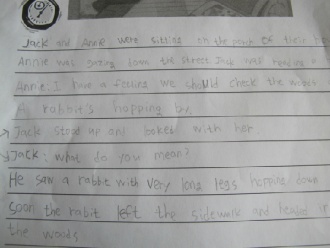 Jack and Annie were sitting on the porch of their
Annie was gazing down the street Jack was reading a
Annie: I have a feeling we should check the woods
A rabbit's hopping by.
Jack stood up and looked with her.
Jack: what do you mean?
He saw a rabbit with very long legs hopping down
soon the rabit left the sidewalk and headed in
the woods